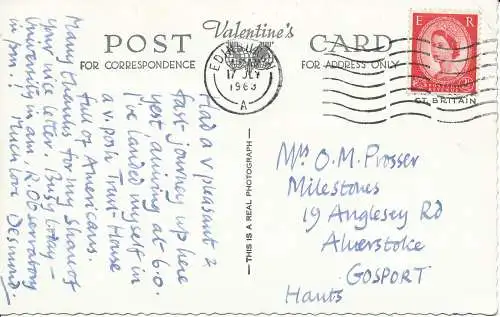 Valentine's
POST CARD
FOR CORRESPONDENCE
FOR ADDRESS ONLY
E R
EDINBURGH
17 JLY
1963
A
GT. BRITAIN
THIS IS A REAL PHOTOGRAPH
Had a v pleasant &
fast journey up here
yest, arriving at 6.0.
I've landed myself in
a v. posh Trust House
full of Americans.
Many thanks for my share of
your nice letter. Busy today –
University in am. R. Observatory
in pm! Much love Desmond.
Mrs O.M. Prosser
Milestones
19 Anglesey Rd
Alverstoke
GOSPORT
Hants